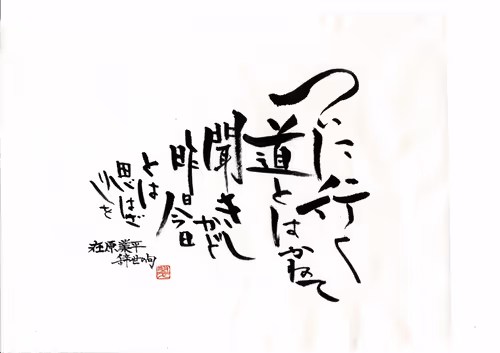 ついに行く
道とはかねて
聞きしかど
昨日今日
とは
思はざ
りしを
在原業平
辞世の句